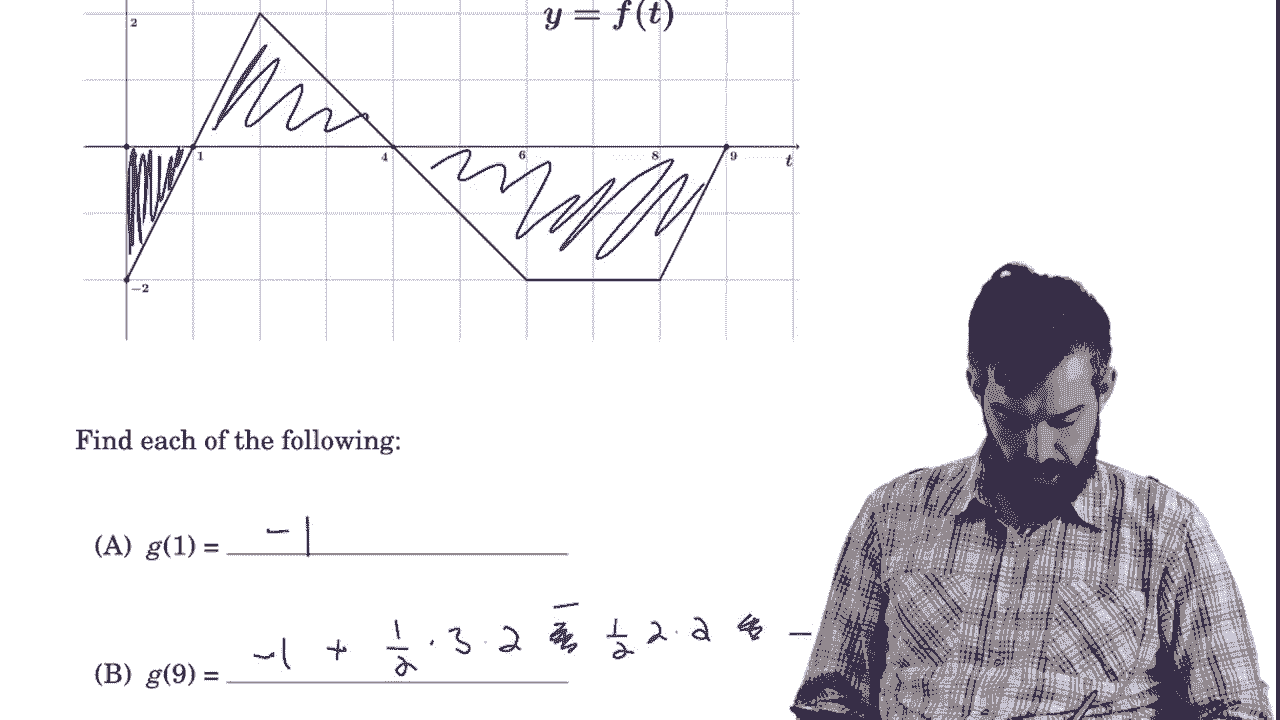 2
y = f(t)
1 4 6 8 9 t
−2
Find each of the following:
(A) g(1) = -1
(B) g(9) = -1 + 1/2 · 3 · 2 - 1/2 2 · 2 -